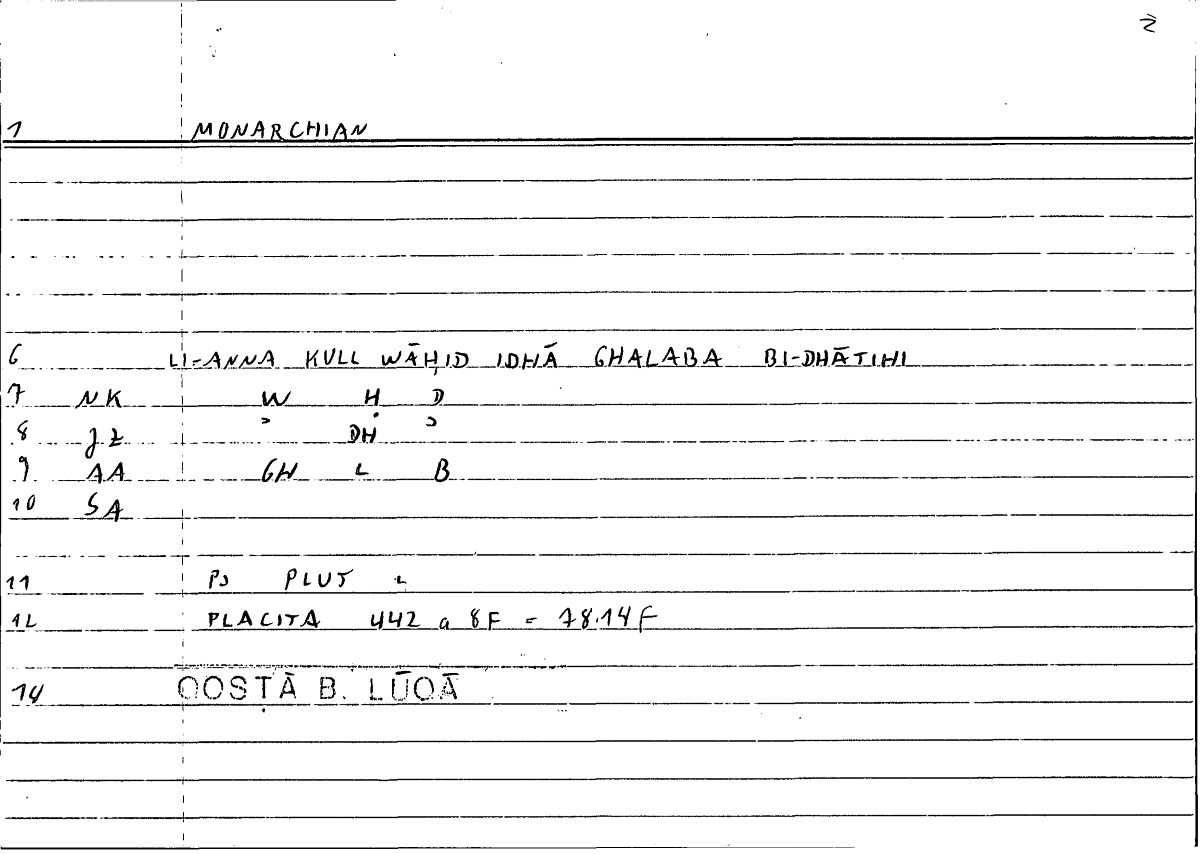 2
1 MONARCHIAN
6 LI-ANNA KULL WĀḤID IDHĀ GHALABA BI-DHĀTIHI
7 NK W Ḥ D
8 JZ ʾ DH ʾ
9 AA GH L B
10 SA
11 PS PLUT
12 PLACITA 442 a 8F = 78.14F
14 QOSṬĀ B. LŪQĀ